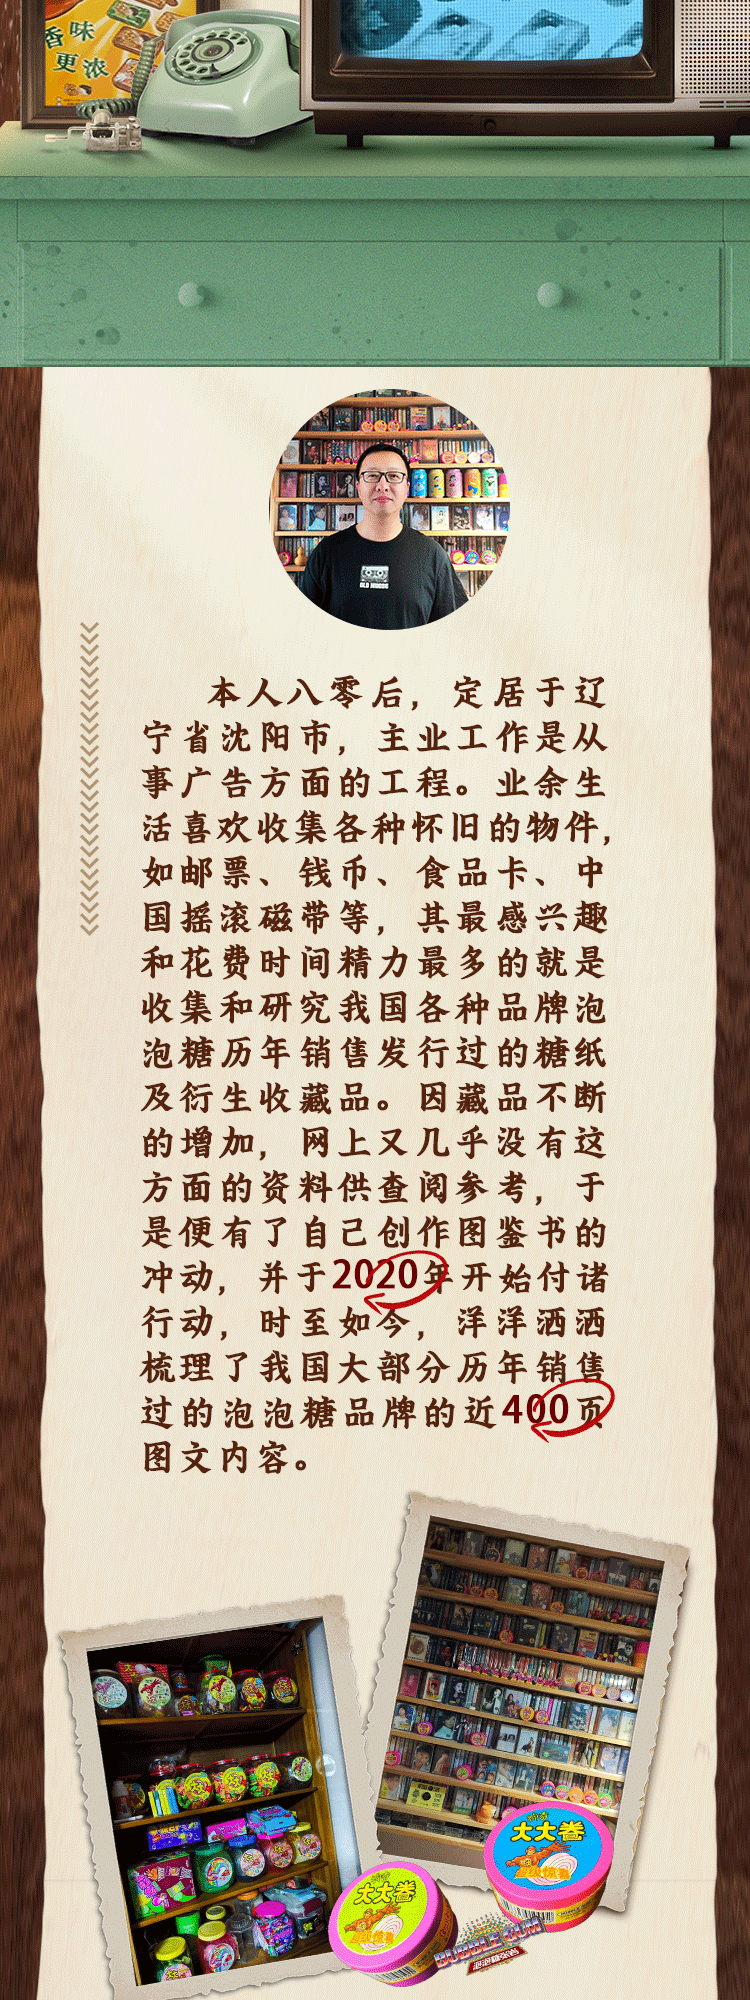 香味
更浓
OLD MUSIC
本人八零后，定居于辽
宁省沈阳市，主业工作是从
事广告方面的工程。业余生
活喜欢收集各种怀旧的物件，
如邮票、钱币、食品卡、中
国摇滚磁带等，其最感兴趣
和花费时间精力最多的就是
收集和研究我国各种品牌泡
泡糖历年销售发行过的糖纸
及衍生收藏品。因藏品不断
的增加，网上又几乎没有这
方面的资料供查阅参考，于
是便有了自己创作图鉴书的
冲动，并于2020年开始付诸
行动，时至如今，洋洋洒洒
梳理了我国大部分历年销售
过的泡泡糖品牌的近400页
图文内容。
大大卷
大大卷
BUBBLE GUM